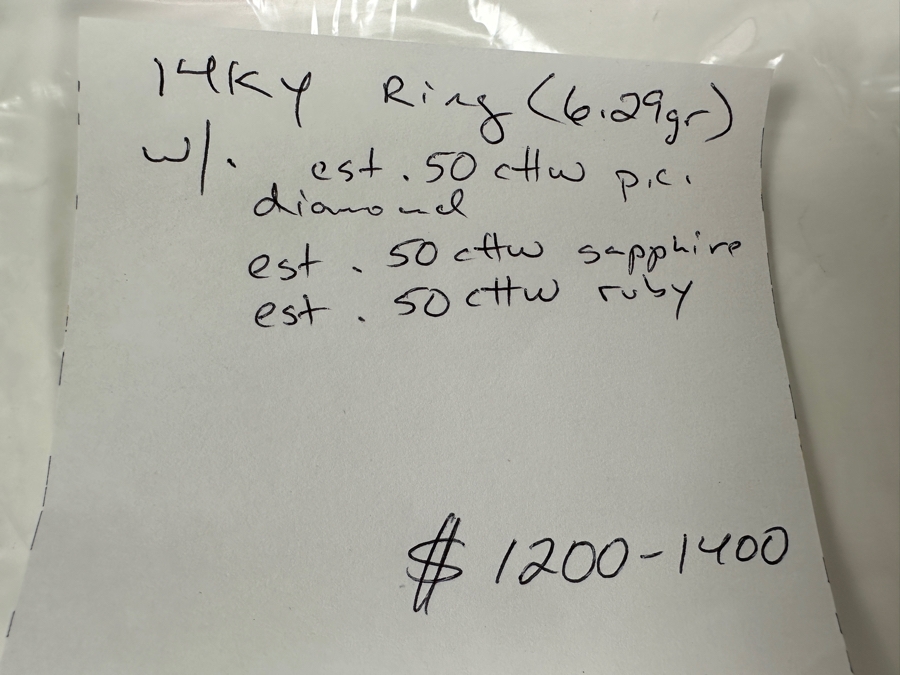 14KY Ring (6.29gr)
w/. est .50 cttw p.c.
diamond
est .50 cttw sapphire
est .50 cttw ruby
$ 1200-1400